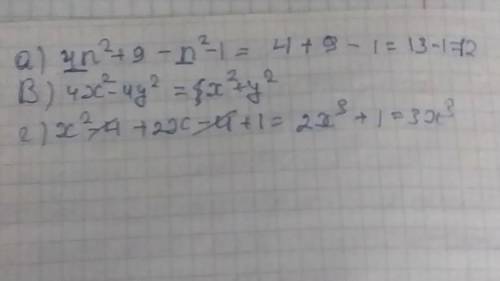 а) 4n²+9-n²-1= 4+9-1=13-1=12
В) 4x²-4y² = {x²+y²
г) x²-4+2x-4+1= 2x³+1=3x³